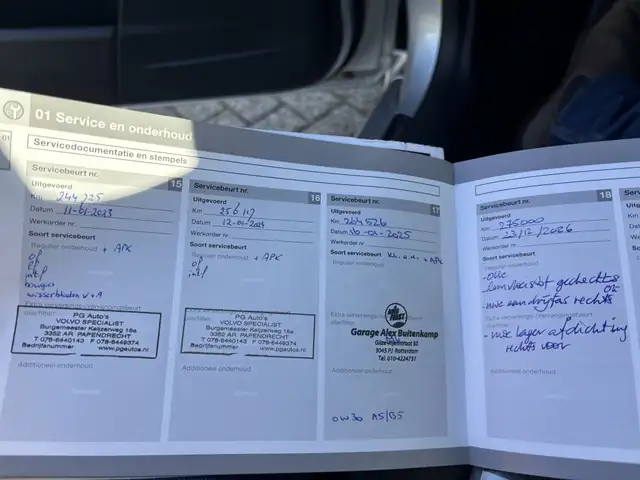 01 Service en onderhoud
01
Servicedocumentatie en stempels
Servicebeurt nr. 15
Uitgevoerd
Km 244 725
Datum 11-01-2023
Werkorder nr.
Soort servicebeurt
Regulier onderhoud + APK
of
intf
bougies
wisserbladen v+a
PG Auto's
VOLVO SPECIALIST
Burgemeester Keijzerweg 16a
3352 AR PAPENDRECHT
T 078-6440143 F 078-6449374
Bedrijfsnummer www.pgautos.nl
Additioneel onderhoud
Servicebeurt nr. 16
Uitgevoerd
Km 256 117
Datum 12-01-2024
Werkorder nr.
Soort servicebeurt
Regulier onderhoud + APK
of
intf
PG Auto's
VOLVO SPECIALIST
Burgemeester Keijzerweg 16a
3352 AR PAPENDRECHT
T 078-6440143 F 078-6449374
Bedrijfsnummer www.pgautos.nl
Additioneel onderhoud
Servicebeurt nr. 17
Uitgevoerd
Km 264526
Datum 10-01-2025
Werkorder nr.
Soort servicebeurt Kl. o.h. + APK
Regulier onderhoud
Garage Alex Buitenkamp
3045 PJ Rotterdam
Tel. 010-4224737
Additioneel onderhoud
0W30 A5/B5
Servicebeurt nr. 18
Uitgevoerd
Km 275000
Datum 23/12/2026
Werkorder nr.
Soort servicebeurt
Regulier onderhoud
- olie
gecheckt
ok
aandrijfas rechts
lager afdichting
rechts voor
Additioneel onderhoud